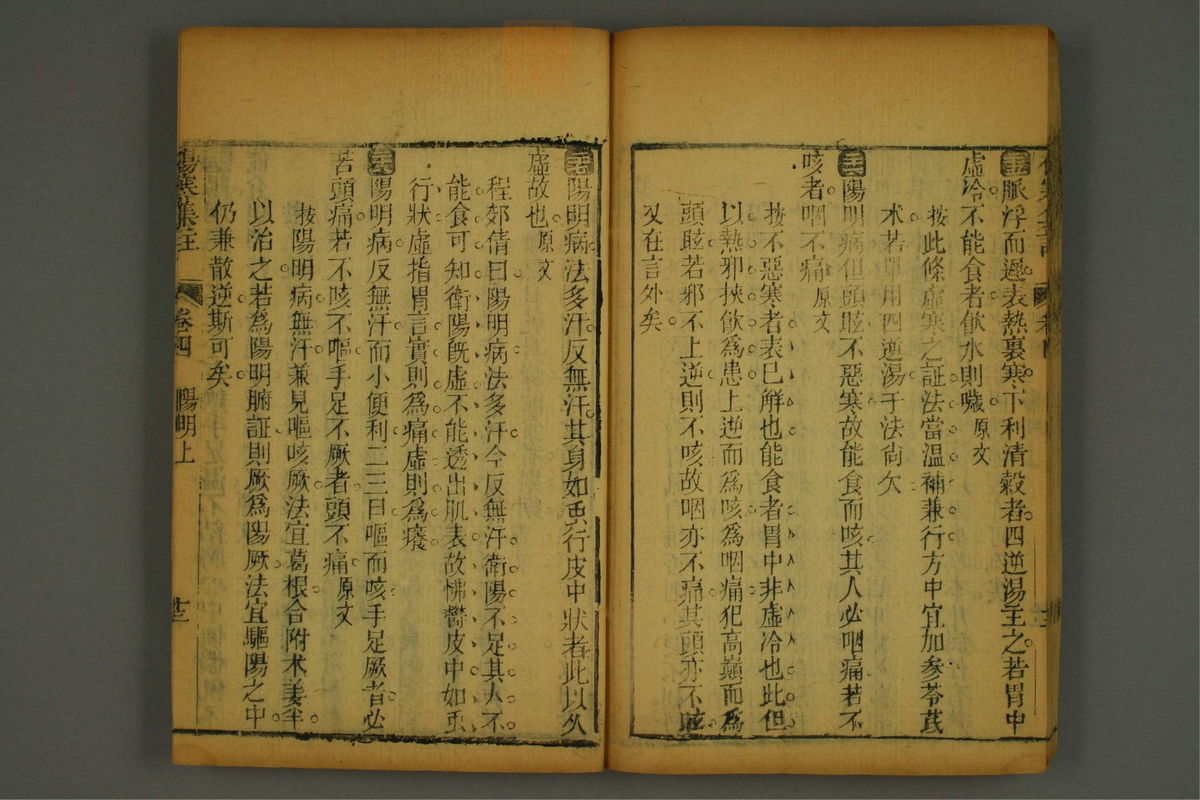 脈浮而遲表熱裏寒下利清穀者四逆湯主之若胃中
虛冷不能食者飲水則噦原文
按此條虛寒之証法當溫補兼行方中宜加参苓芪
术若單用四逆湯于法尚欠
陽明病但頭眩不惡寒故能食而咳其人必咽痛若不
咳者咽不痛原文
按不惡寒者表巳解也能食者胃中非虛冷也此但
以熱邪挾飲為患上逆而為咳為咽痛犯高巔而為
頭眩若邪不上逆則不咳故咽亦不痛其頭亦不眩
又在言外矣
陽明病法多汗反無汗其身如虫行皮中狀者此以久
虛故也原文
程郊倩曰陽明病法多汗今反無汗衛陽不足其人不
能食可知衛陽旣虛不能透出肌表故怫鬱皮中如虫
行狀虛指胃言實則為痛虛則為癢
陽明病反無汗而小便利二三日嘔而咳手足厥者必
苦頭痛若不咳不嘔手足不厥者頭不痛原文
按陽明病無汗兼見嘔咳厥法宜葛根合附术姜半
以治之若為陽明腑証則厥為陽厥法宜驅陽之中
仍兼散逆斯可矣
傷寒集註 卷四 陽明上 廿三